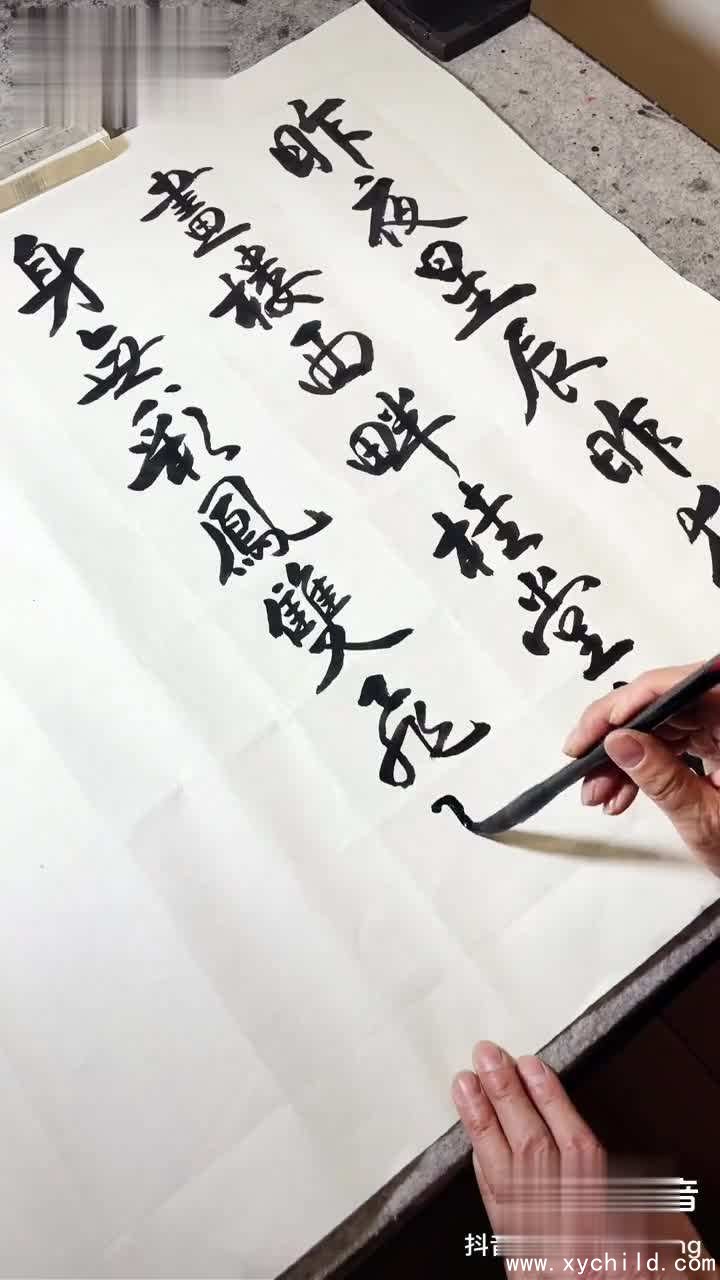 昨夜星辰昨
畫樓西畔桂堂
身無彩鳳雙飛
音
抖音
www.xychild.com